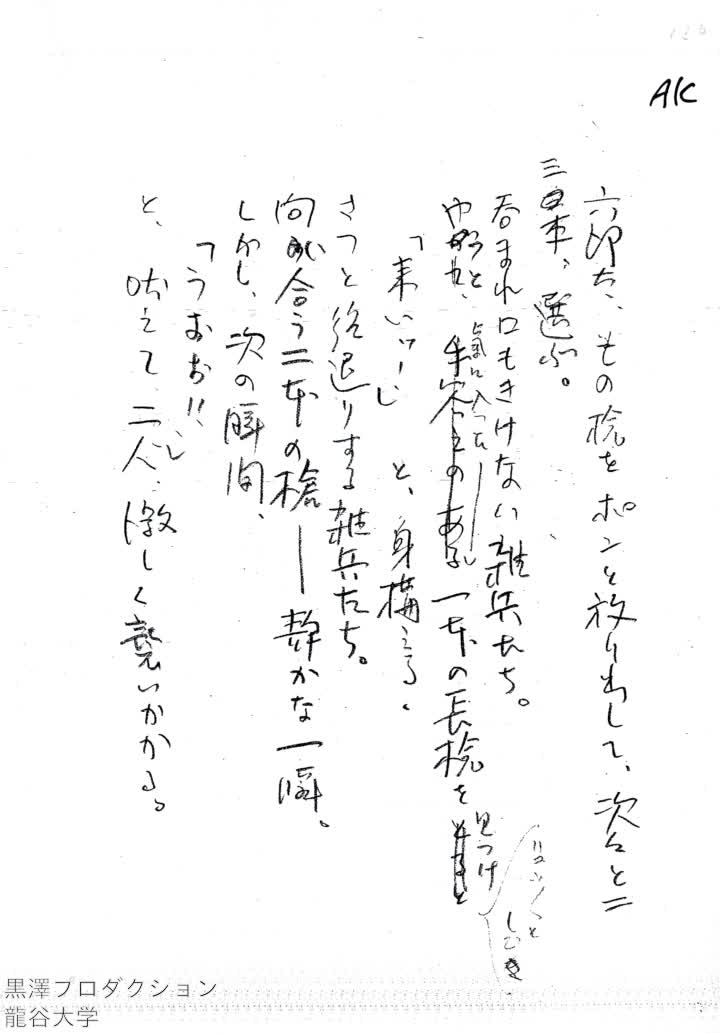 AK
六郎太、その槍をポンと放り出して、次々と二
三本、選ぶ。
呑まれ口もきけない雑兵たち。
やっと、気に入った一本の長槍を見つけ
「来いッ！」と、身構える。
さっと後退りする雑兵たち。
向い合う二本の槍――静かな一瞬。
しかし、次の瞬間、
「うおお!!」
と、吠えて、二人、激しく襲いかかる。
黒澤プロダクション
龍谷大学